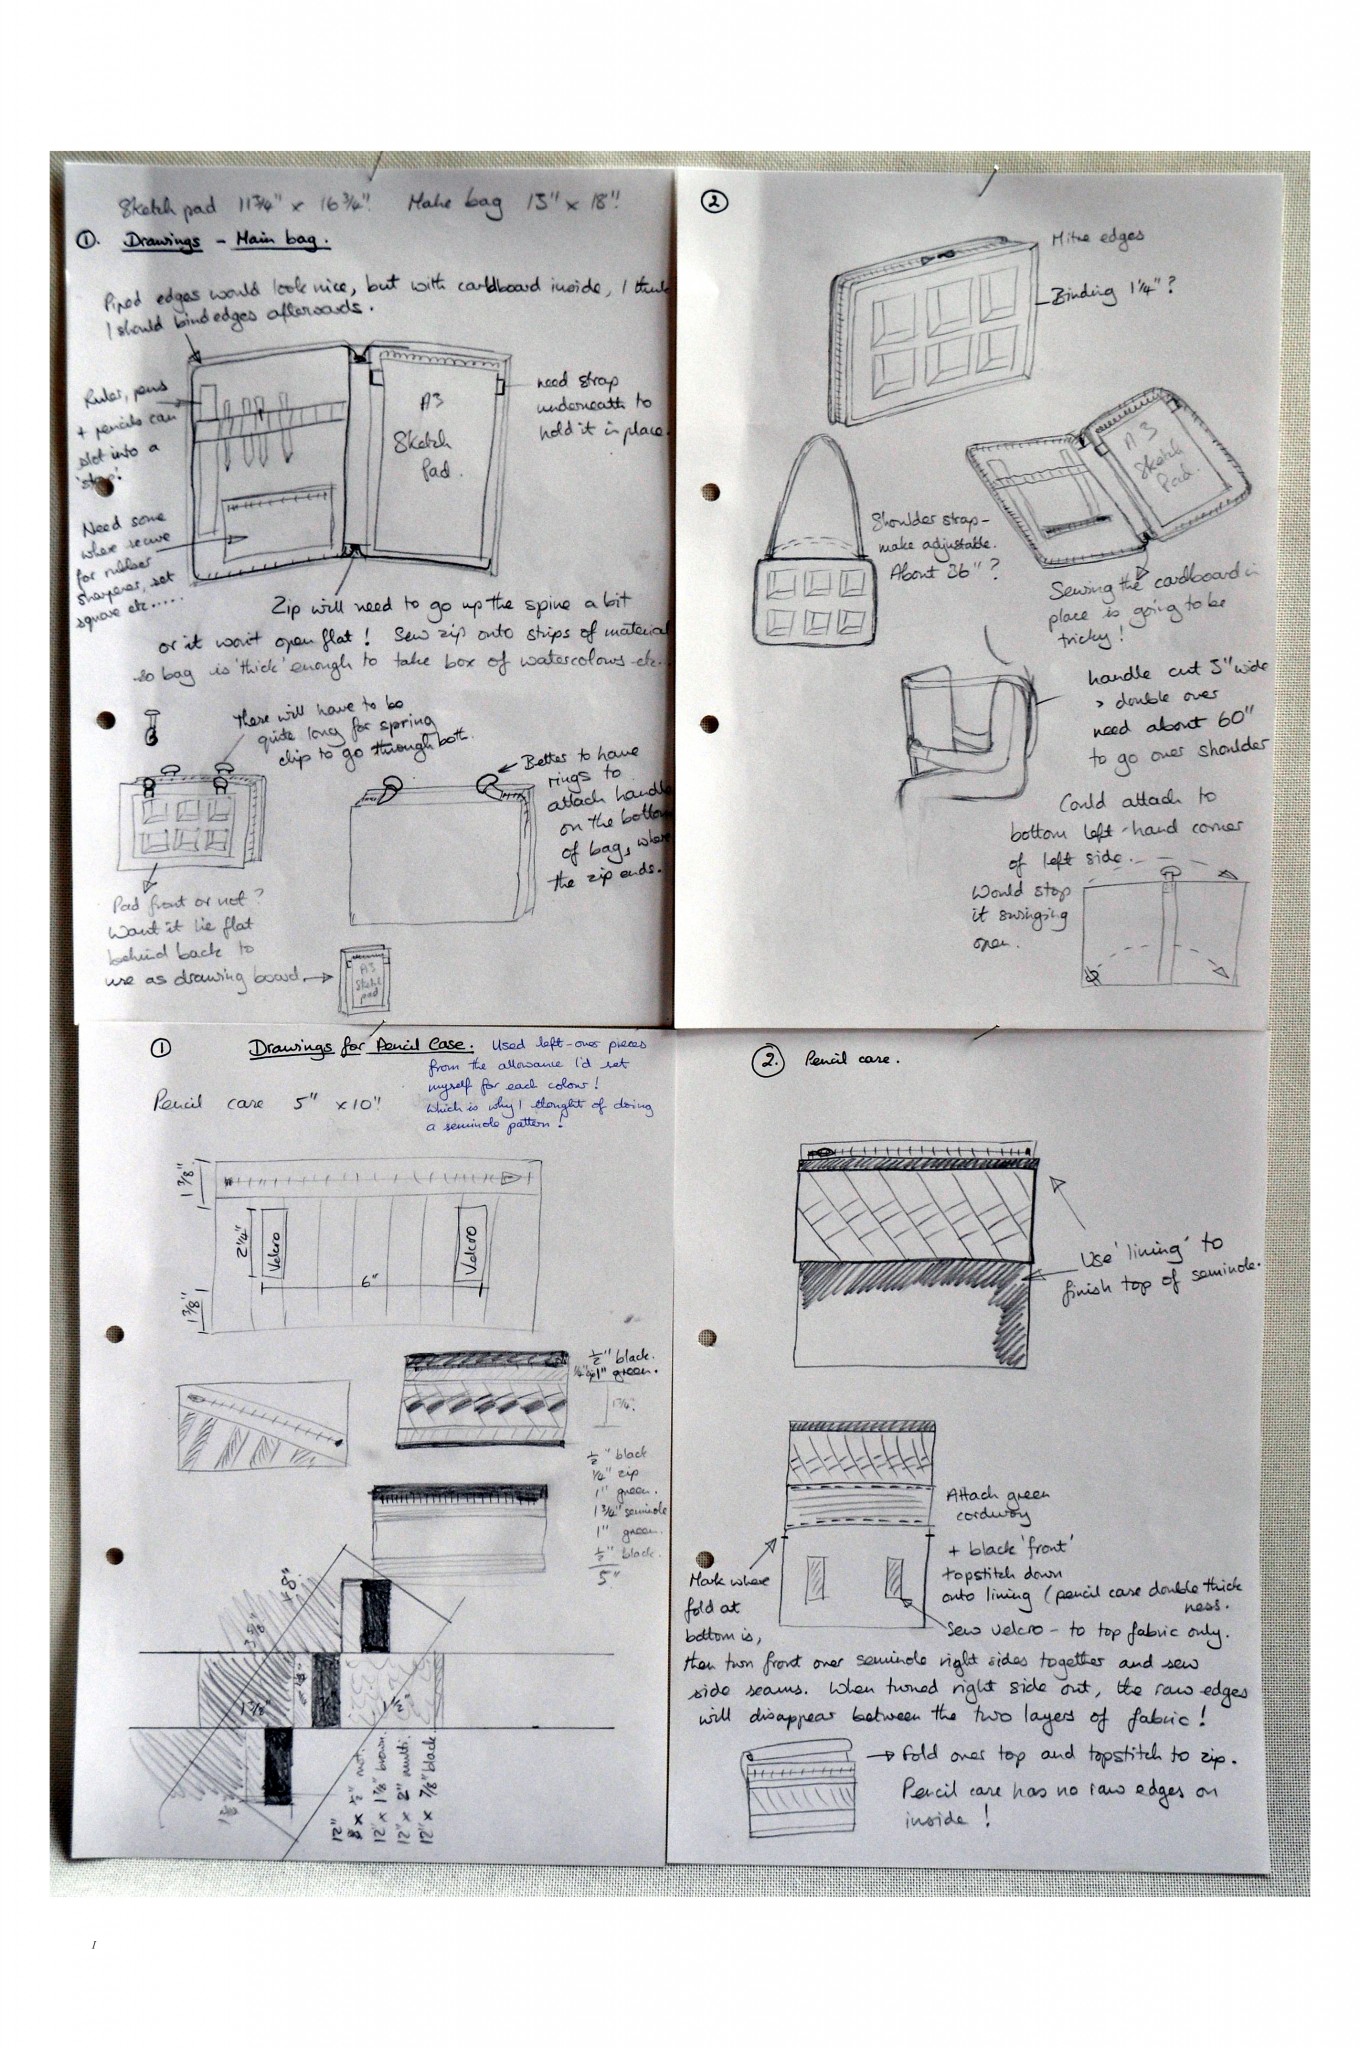 Sketch pad 11¾" x 16¾". Make bag 13" x 18".
①. Drawings - Main bag.
Piped edges would look nice, but with cardboard inside, I think
I should bind edges afterwards.
Ruler, pens
+ pencils can
slot into a
'strap'.
Need some
where secure
for rubber
sharpener, set
square etc.....
A3
Sketch
Pad.
need strap
underneath to
hold it in place.
Zip will need to go up the spine a bit
or it won't open flat! Sew zip onto strips of material
so bag is 'thick' enough to take box of watercolours etc..
These will have to be
quite long for spring
clip to go through both.
Better to have
rings to
attach handle
on the bottom
of bag, where
the zip ends.
Pad front or not?
Want it lie flat
behind back to
use as drawing board
A3
Sketch
pad
②
Mitre edges
Binding 1¼"?
Shoulder strap -
make adjustable.
About 36"?
A3
Sketch
Pad.
Sewing the cardboard in
place is going to be
tricky!
handle cut 5" wide
> double over
need about 60"
to go over shoulder
Could attach to
bottom left-hand corner
of left side.
Would stop
it swinging
open.
① Drawings for Pencil Case.
Used left-over pieces
from the allowance I'd set
myself for each colour!
which is why I thought of doing
a seminole pattern!
Pencil case 5" x 10"
1⅞"
2¼"
Velcro
Velcro
6"
1⅜"
½" black.
1" green.
1¾"
½" black
¼" zip
1" green.
1¾" seminole
1" green.
½" black.
5"
1⅜"
1½"
12"
12" x 1⅜" brown.
12" x 2" multi.
12" x ⅞" black
②. Pencil case.
Use 'lining' to
finish top of seminole.
Attach green
corduroy
+ black 'front'
topstitch down
onto lining (pencil case double thick
ness.
Mark where
fold at
bottom is,
Sew velcro - to top fabric only.
then turn front over seminole right sides together and sew
side seams. When turned right side out, the raw edges
will disappear between the two layers of fabric!
→ Fold over top and topstitch to zip.
Pencil case has no raw edges on
inside!
I